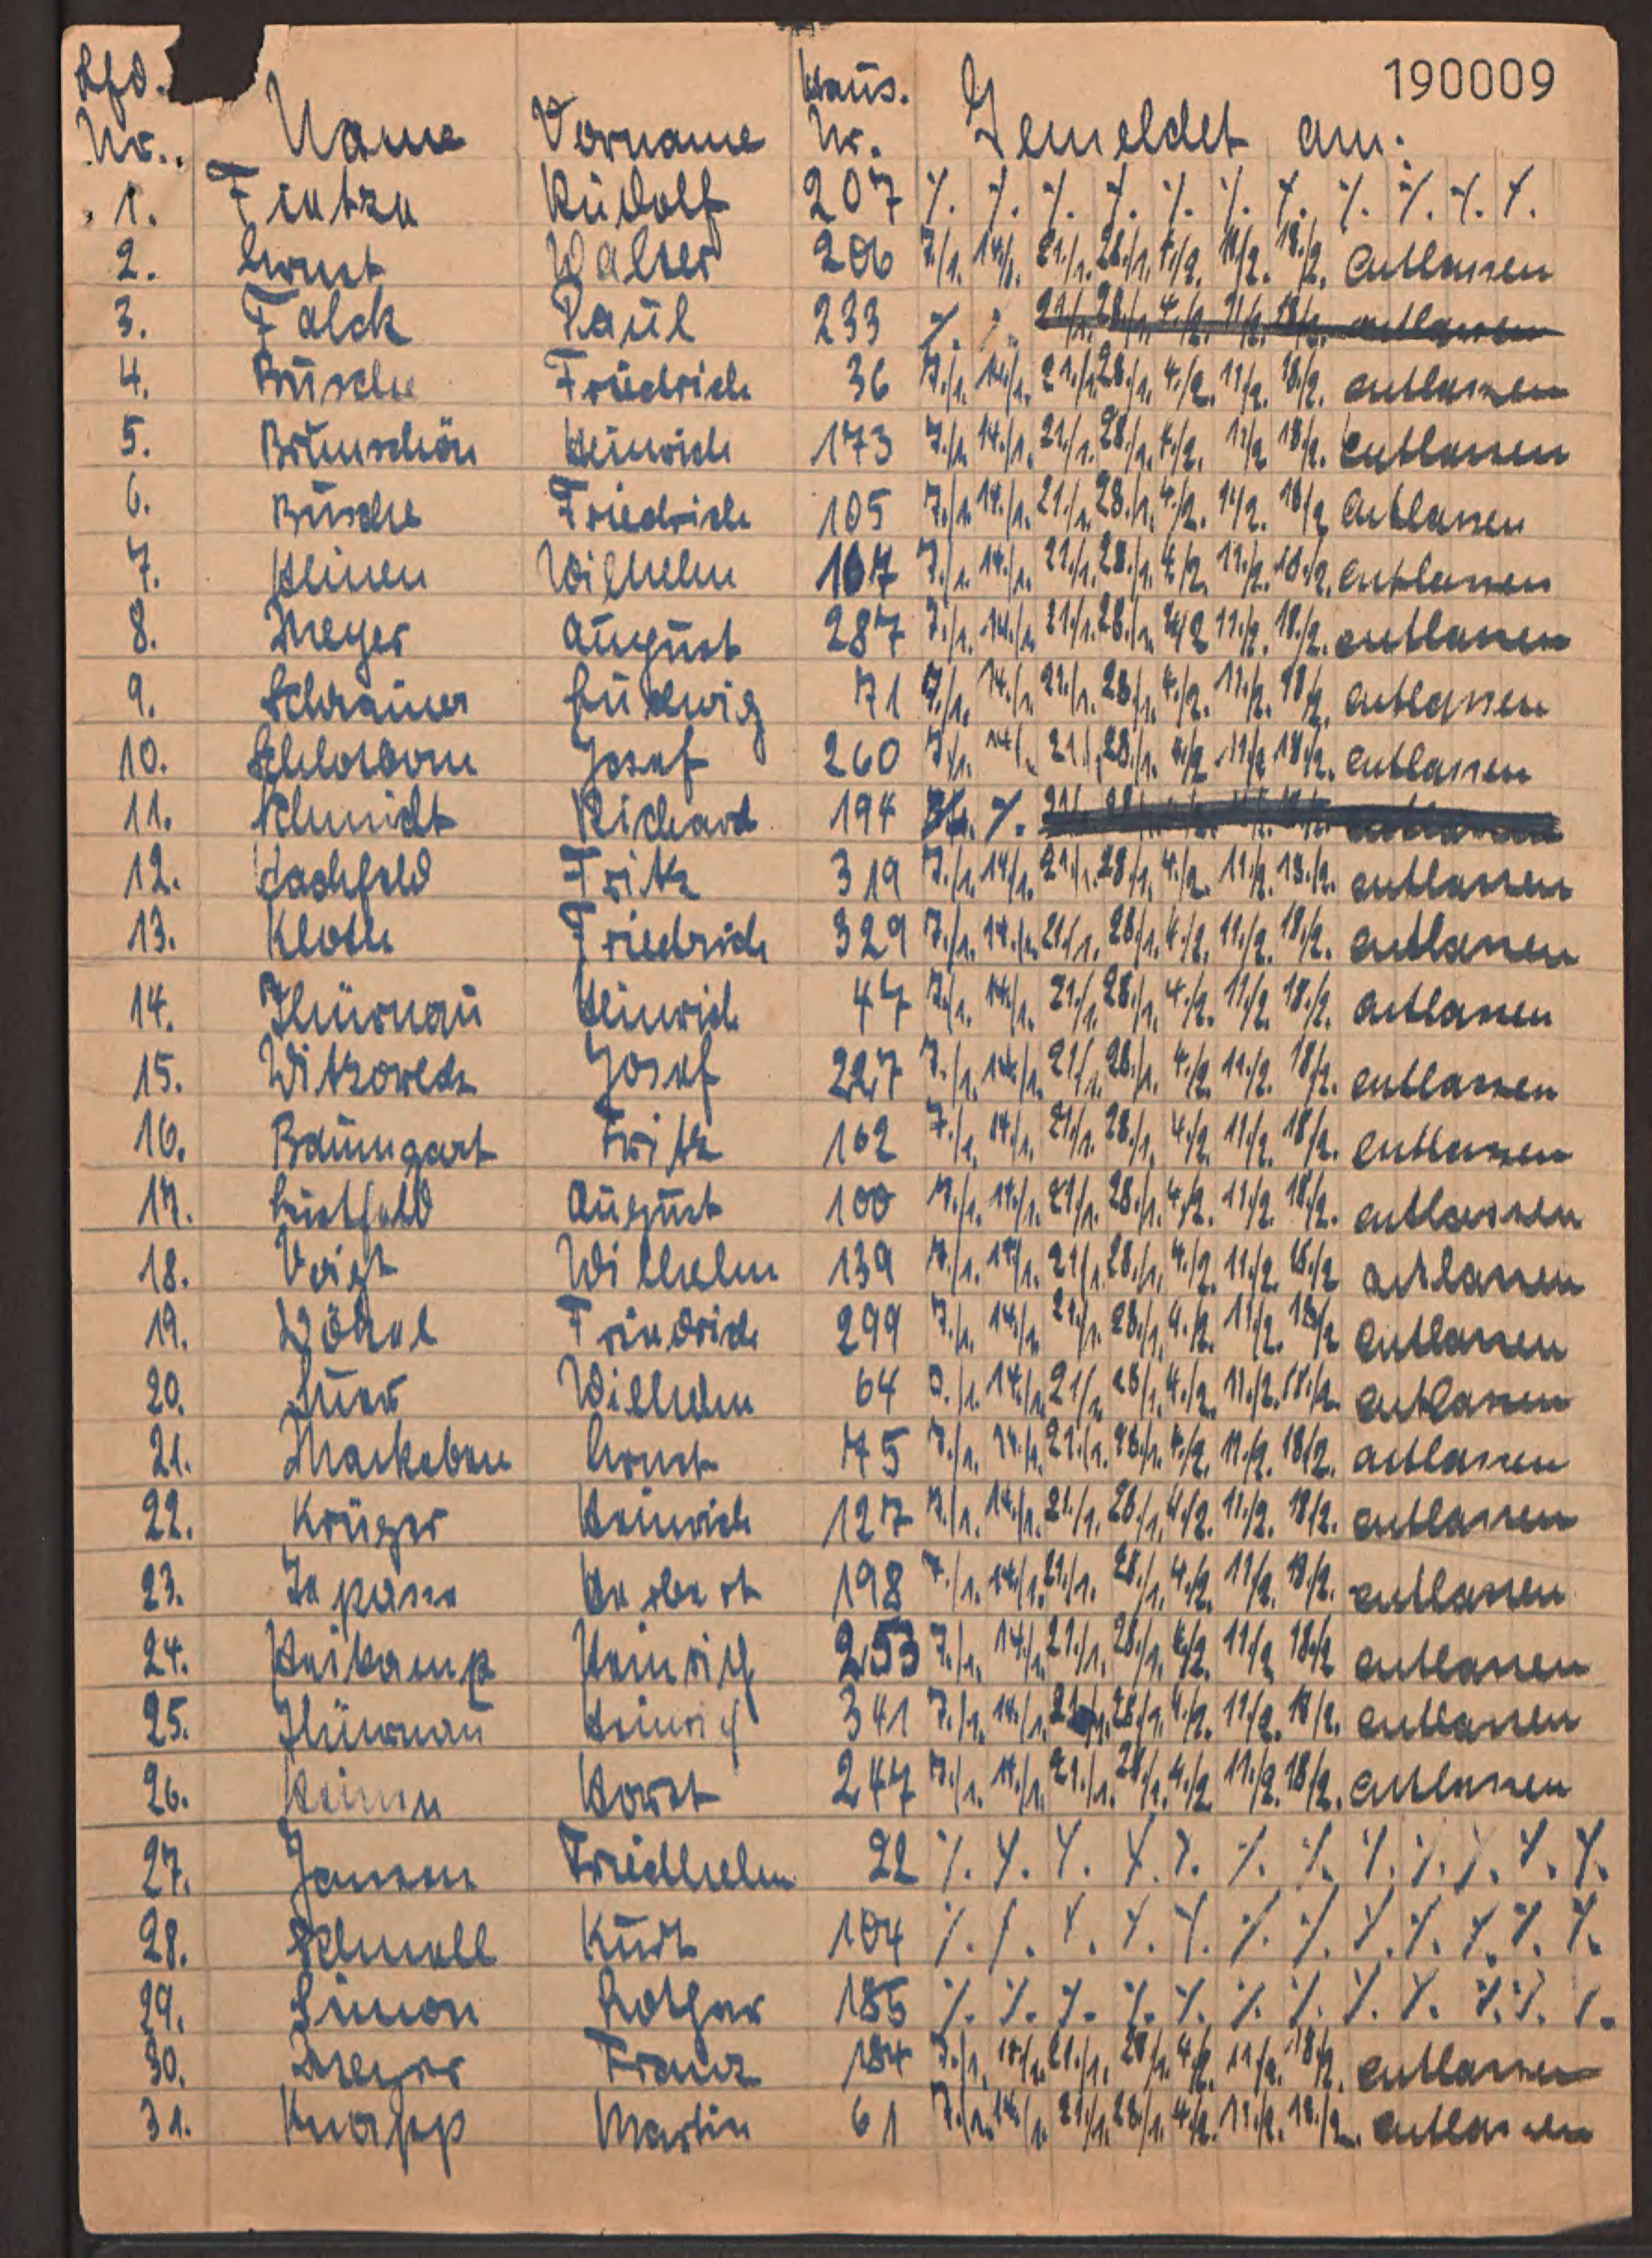 190009
Lfd. Nr. Name Vorname Haus. Nr. Gemeldet am:
1. Rudolf 207 ٪. ٪. ٪. ٪. ٪. ٪. ٪. ٪. ٪. ٪. ٪.
2. Ernst Walter 206 7./1. 14./1. 21./1. 28./1. 4./2. 11./2. 18./2. entlassen
3. Falck Paul 233 ٪. ٪. 21./1. 28./1. 4./2. 11./2. 18./2. entlassen
4. Busche Friedrich 36 7./1. 14./1. 21./1. 28./1. 4./2. 11./2. 18./2. entlassen
5. Brünschön Heinrich 173 7./1. 14./1. 21./1. 28./1. 4./2. 11./2. 18./2. entlassen
6. Busche Friedrich 105 7./1. 14./1. 21./1. 28./1. 4./2. 11./2. 18./2. entlassen
7. Heinen Wilhelm 167 7./1. 14./1. 21./1. 28./1. 4./2. 11./2. 18./2. entlassen
8. Meyer August 287 7./1. 14./1. 21./1. 28./1. 4./2. 11./2. 18./2. entlassen
9. Ludwig 71 7./1. 14./1. 21./1. 28./1. 4./2. 11./2. 18./2. entlassen
10. Josef 260 7./1. 14./1. 21./1. 28./1. 4./2. 11./2. 18./2. entlassen
11. Schmidt Richard 194 ٪.
12. Hachfeld Fritz 319 7./1. 14./1. 21./1. 28./1. 4./2. 11./2. 18./2. entlassen
13. Kloth Friedrich 329 7./1. 14./1. 21./1. 28./1. 4./2. 11./2. 18./2. entlassen
14. Thürnau Heinrich 47 7./1. 14./1. 21./1. 28./1. 4./2. 11./2. 18./2. entlassen
15. Josef 227 7./1. 14./1. 21./1. 28./1. 4./2. 11./2. 18./2. entlassen
16. Baumgart Fritz 162 7./1. 14./1. 21./1. 28./1. 4./2. 11./2. 18./2. entlassen
17. Lustfeld August 100 7./1. 14./1. 21./1. 28./1. 4./2. 11./2. 18./2. entlassen
18. Voigt Wilhelm 139 7./1. 14./1. 21./1. 28./1. 4./2. 11./2. 18./2. entlassen
19. Friedrich 299 7./1. 14./1. 21./1. 28./1. 4./2. 11./2. 18./2. entlassen
20. Wilhelm 64 7./1. 14./1. 21./1. 28./1. 4./2. 11./2. 18./2. entlassen
21. Mackeben Ernst 75 7./1. 14./1. 21./1. 28./1. 4./2. 11./2. 18./2. entlassen
22. Krüger Heinrich 127 7./1. 14./1. 21./1. 28./1. 4./2. 11./2. 18./2. entlassen
23. Herbert 198 7./1. 14./1. 21./1. 28./1. 4./2. 11./2. 18./2. entlassen
24. Heikamp Heinrich 253 7./1. 14./1. 21./1. 28./1. 4./2. 11./2. 18./2. entlassen
25. Thürnau Heinrich 341 7./1. 14./1. 21./1. 28./1. 4./2. 11./2. 18./2. entlassen
26. Horst 247 7./1. 14./1. 21./1. 28./1. 4./2. 11./2. 18./2. entlassen
27. Jansen Friedhelm 22 ٪. ٪. ٪. ٪. ٪. ٪. ٪. ٪. ٪. ٪. ٪. ٪.
28. Schnell Kurt 104 ٪. ٪. ٪. ٪. ٪. ٪. ٪. ٪. ٪. ٪. ٪. ٪.
29. Simon Lothar 185 ٪. ٪. ٪. ٪. ٪. ٪. ٪. ٪. ٪. ٪. ٪. ٪.
30. Meyer Franz 184 7./1. 14./1. 21./1. 28./1. 4./2. 11./2. 18./2. entlassen
31. Knapp Martin 61 7./1. 14./1. 21./1. 28./1. 4./2. 11./2. 18./2. entlassen